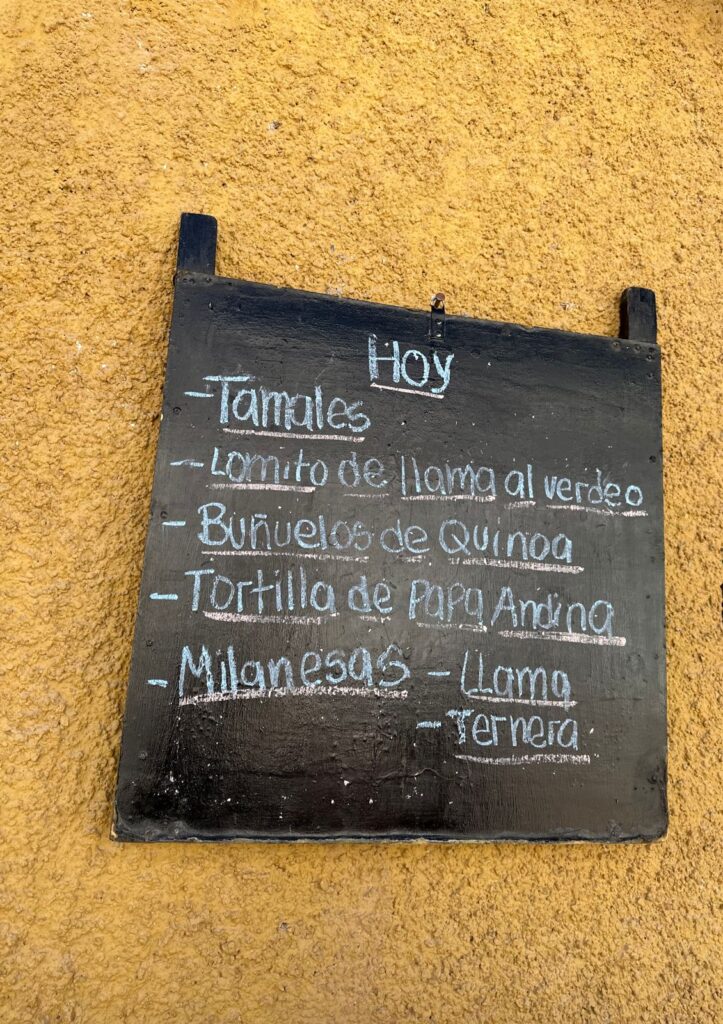 Hoy
- Tamales
- Lomito de llama al verdeo
- Buñuelos de Quinoa
- Tortilla de papa Andina
- Milanesas - Llama
- Ternera